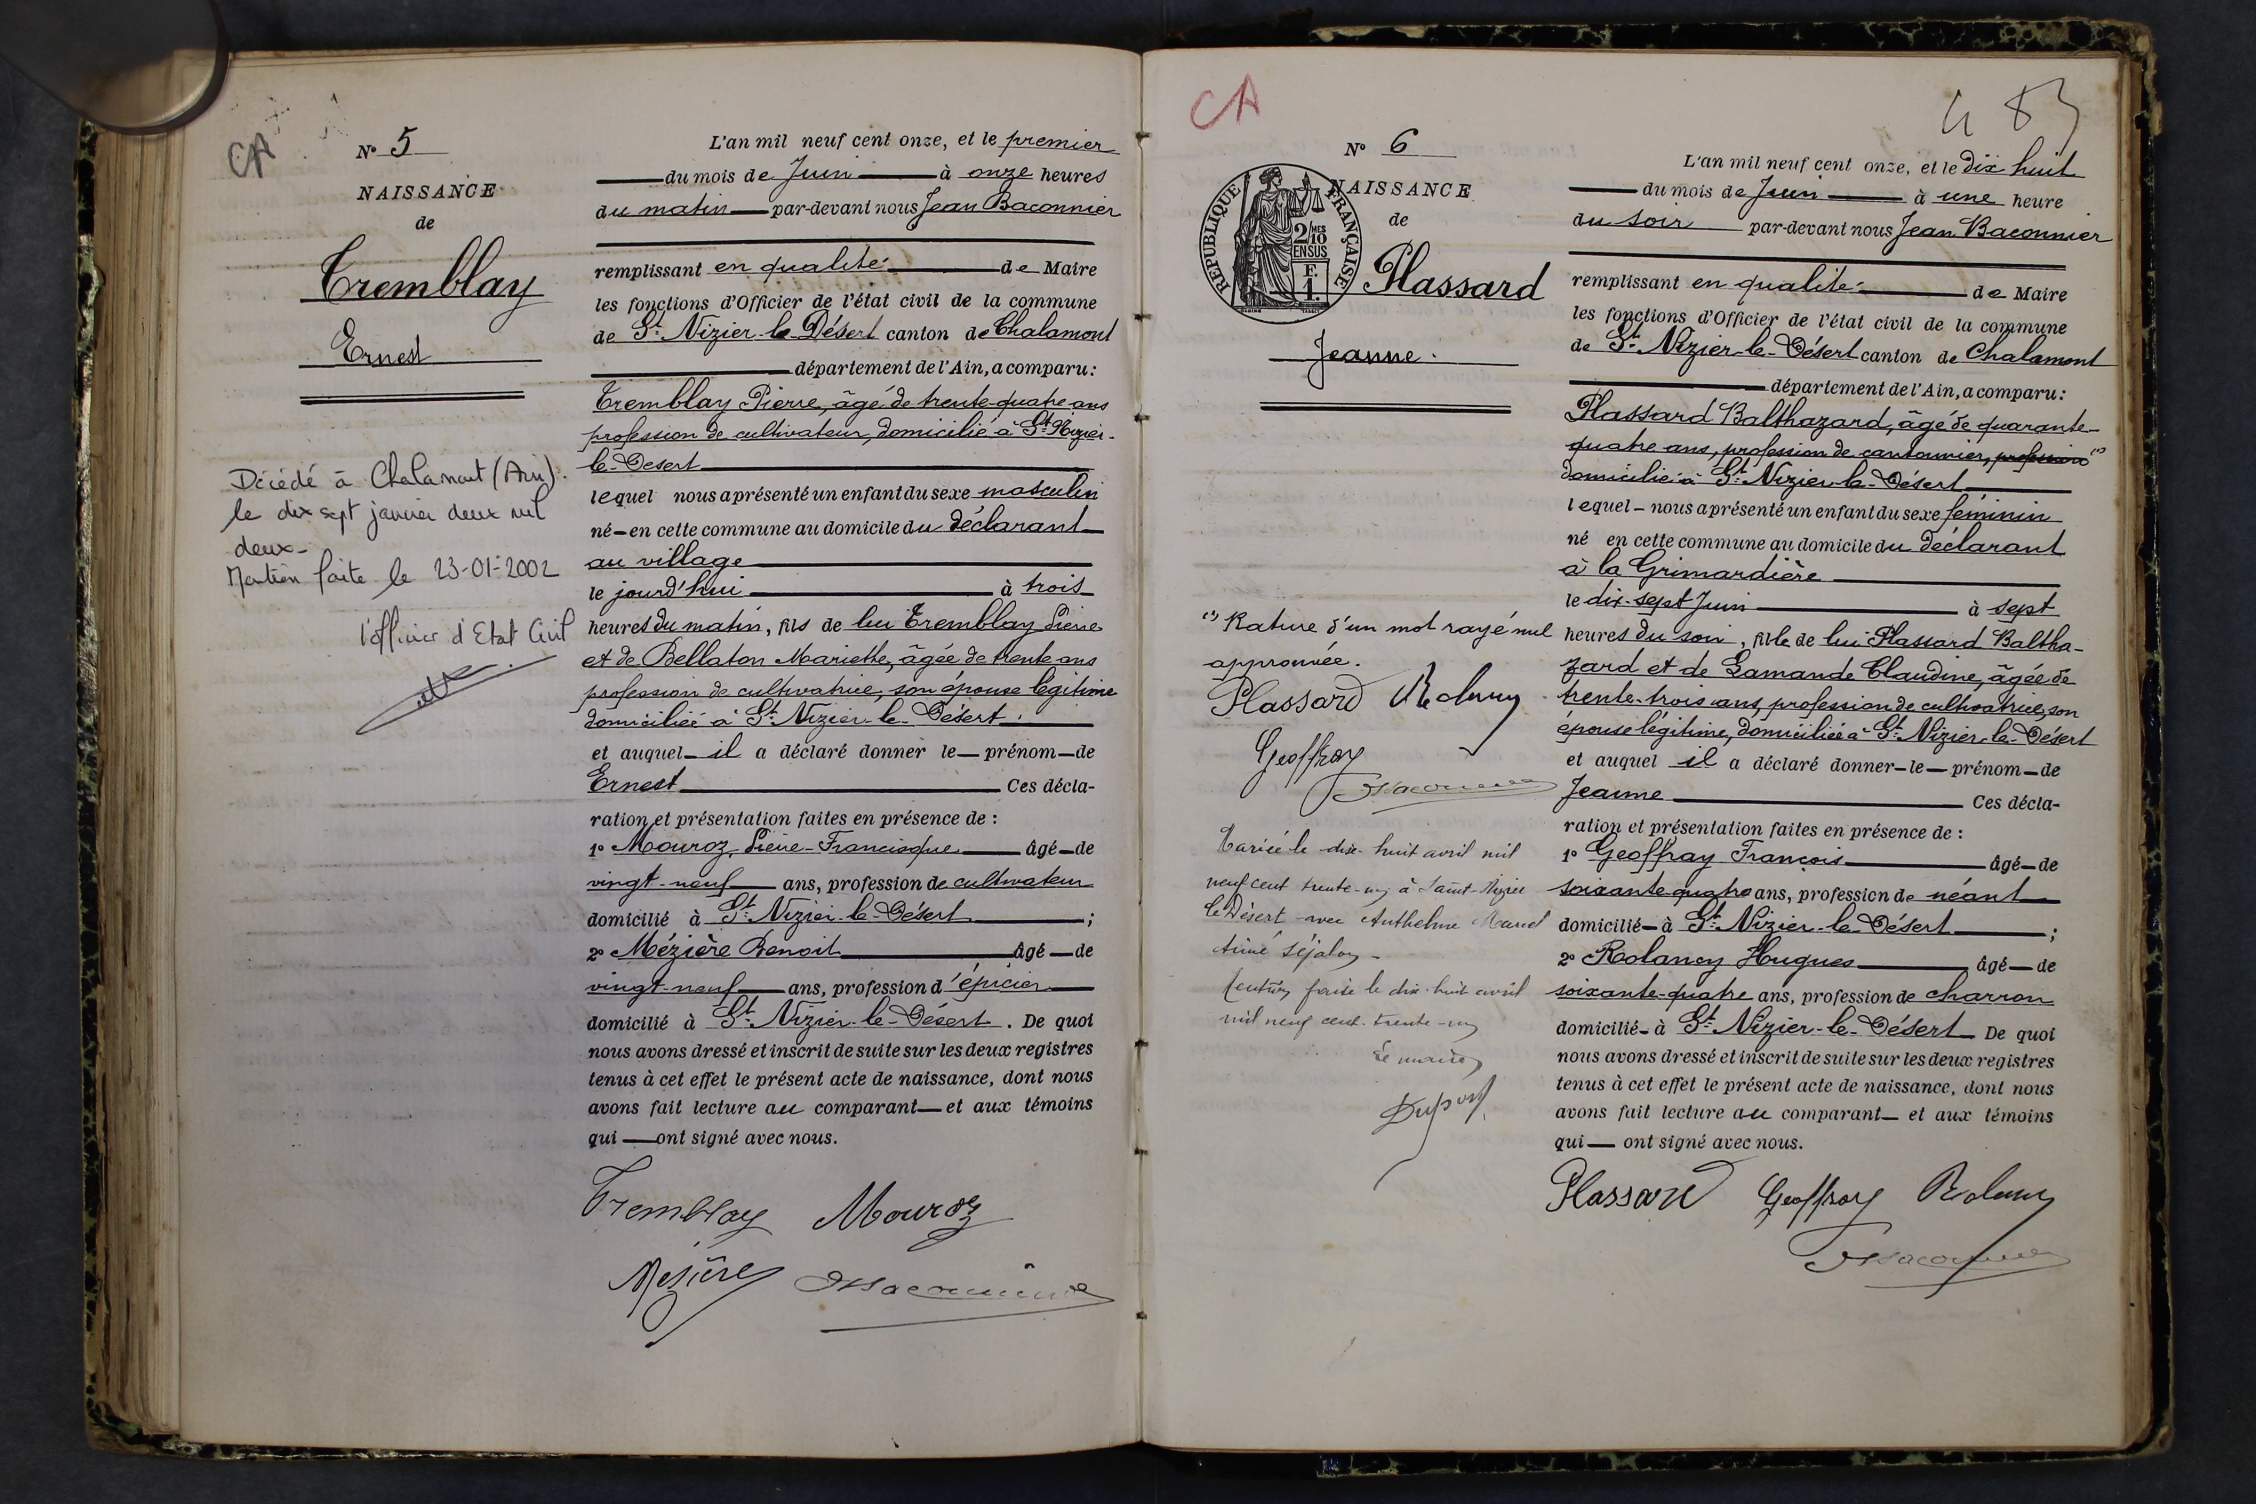 CA
N° 5
NAISSANCE
de
Tremblay
Ernest
Décédé à Chalamont (Ain).
le dix sept janvier deux mil
deux-
Mention faite le 23-01-2002
l'officier d'Etat Civil
L'an mil neuf cent onze, et le premier
du mois de Juin à onze heures
du matin par-devant nous Jean Baconnier
remplissant en qualité de Maire
les fonctions d'Officier de l'état civil de la commune
de St. Nizier-le-Désert canton de Chalamont
département de l'Ain, a comparu:
Tremblay Pierre, âgé de trente-quatre ans
profession de cultivateur, domicilié à St. Nizier-
le-Desert
lequel nous a présenté un enfant du sexe masculin
né en cette commune au domicile du déclarant
au village
le jourd'hui à trois
heures du matin, fils de lui Tremblay Pierre
et de Bellaton Mariette, âgée de trente ans
profession de cultivatrice, son épouse légitime
domiciliée à St. Nizier-le-Désert.
et auquel il a déclaré donner le prénom de
Ernest Ces décla-
ration et présentation faites en présence de :
1° Mouroz Pierre-Francisque âgé de
vingt-neuf ans, profession de cultivateur
domicilié à St. Nizier-le-Désert ;
2° Mézière Benoit âgé de
vingt-neuf ans, profession d'épicier
domicilié à St. Nizier-le-Désert. De quoi
nous avons dressé et inscrit de suite sur les deux registres
tenus à cet effet le présent acte de naissance, dont nous
avons fait lecture au comparant et aux témoins
qui ont signé avec nous.
Tremblay Mouroz
Mésière Baconnier
CA
N° 6
NAISSANCE
de
REPUBLIQUE FRANÇAISE
2/10 MES
EN SUS
F.
1.
Plassard
Jeanne.
(1) Rature d'un mot rayé nul
approuvée.
Plassard Rolancy
Geoffray
Baconnier
Mariée le dix-huit avril mil
neuf cent trente-un à Saint-Nizier
le Désert avec Anthelme Marcel
Aimé Séjalon -
Mention faite le dix-huit avril
mil neuf cent trente-un
Le maire
Dupont
L'an mil neuf cent onze, et le dix huit
du mois de Juin à une heure
du soir par-devant nous Jean Baconnier
remplissant en qualité de Maire
les fonctions d'Officier de l'état civil de la commune
de St. Nizier-le-Désert canton de Chalamont
département de l'Ain, a comparu:
Plassard Balthazard, âgé de quarante-
quatre ans, profession de cantonnier, profession (1)
domicilié à St. Nizier-le-Désert
lequel nous a présenté un enfant du sexe féminin
né en cette commune au domicile du déclarant
à la Grimardière
le dix-sept Juin à sept
heures du soir, fille de lui Plassard Baltha-
zard et de Lamande Claudine, âgée de
trente-trois ans, profession de cultivatrice, son
épouse légitime, domiciliée à St. Nizier-le-Désert
et auquel il a déclaré donner le prénom de
Jeanne Ces décla-
ration et présentation faites en présence de :
1° Geoffray François âgé de
soixante-quatre ans, profession de néant
domicilié à St. Nizier-le-Désert ;
2° Rolancy Hugues âgé de
soixante-quatre ans, profession de charron
domicilié à St. Nizier-le-Désert De quoi
nous avons dressé et inscrit de suite sur les deux registres
tenus à cet effet le présent acte de naissance, dont nous
avons fait lecture au comparant et aux témoins
qui ont signé avec nous.
Plassard Geoffray Rolancy
Baconnier